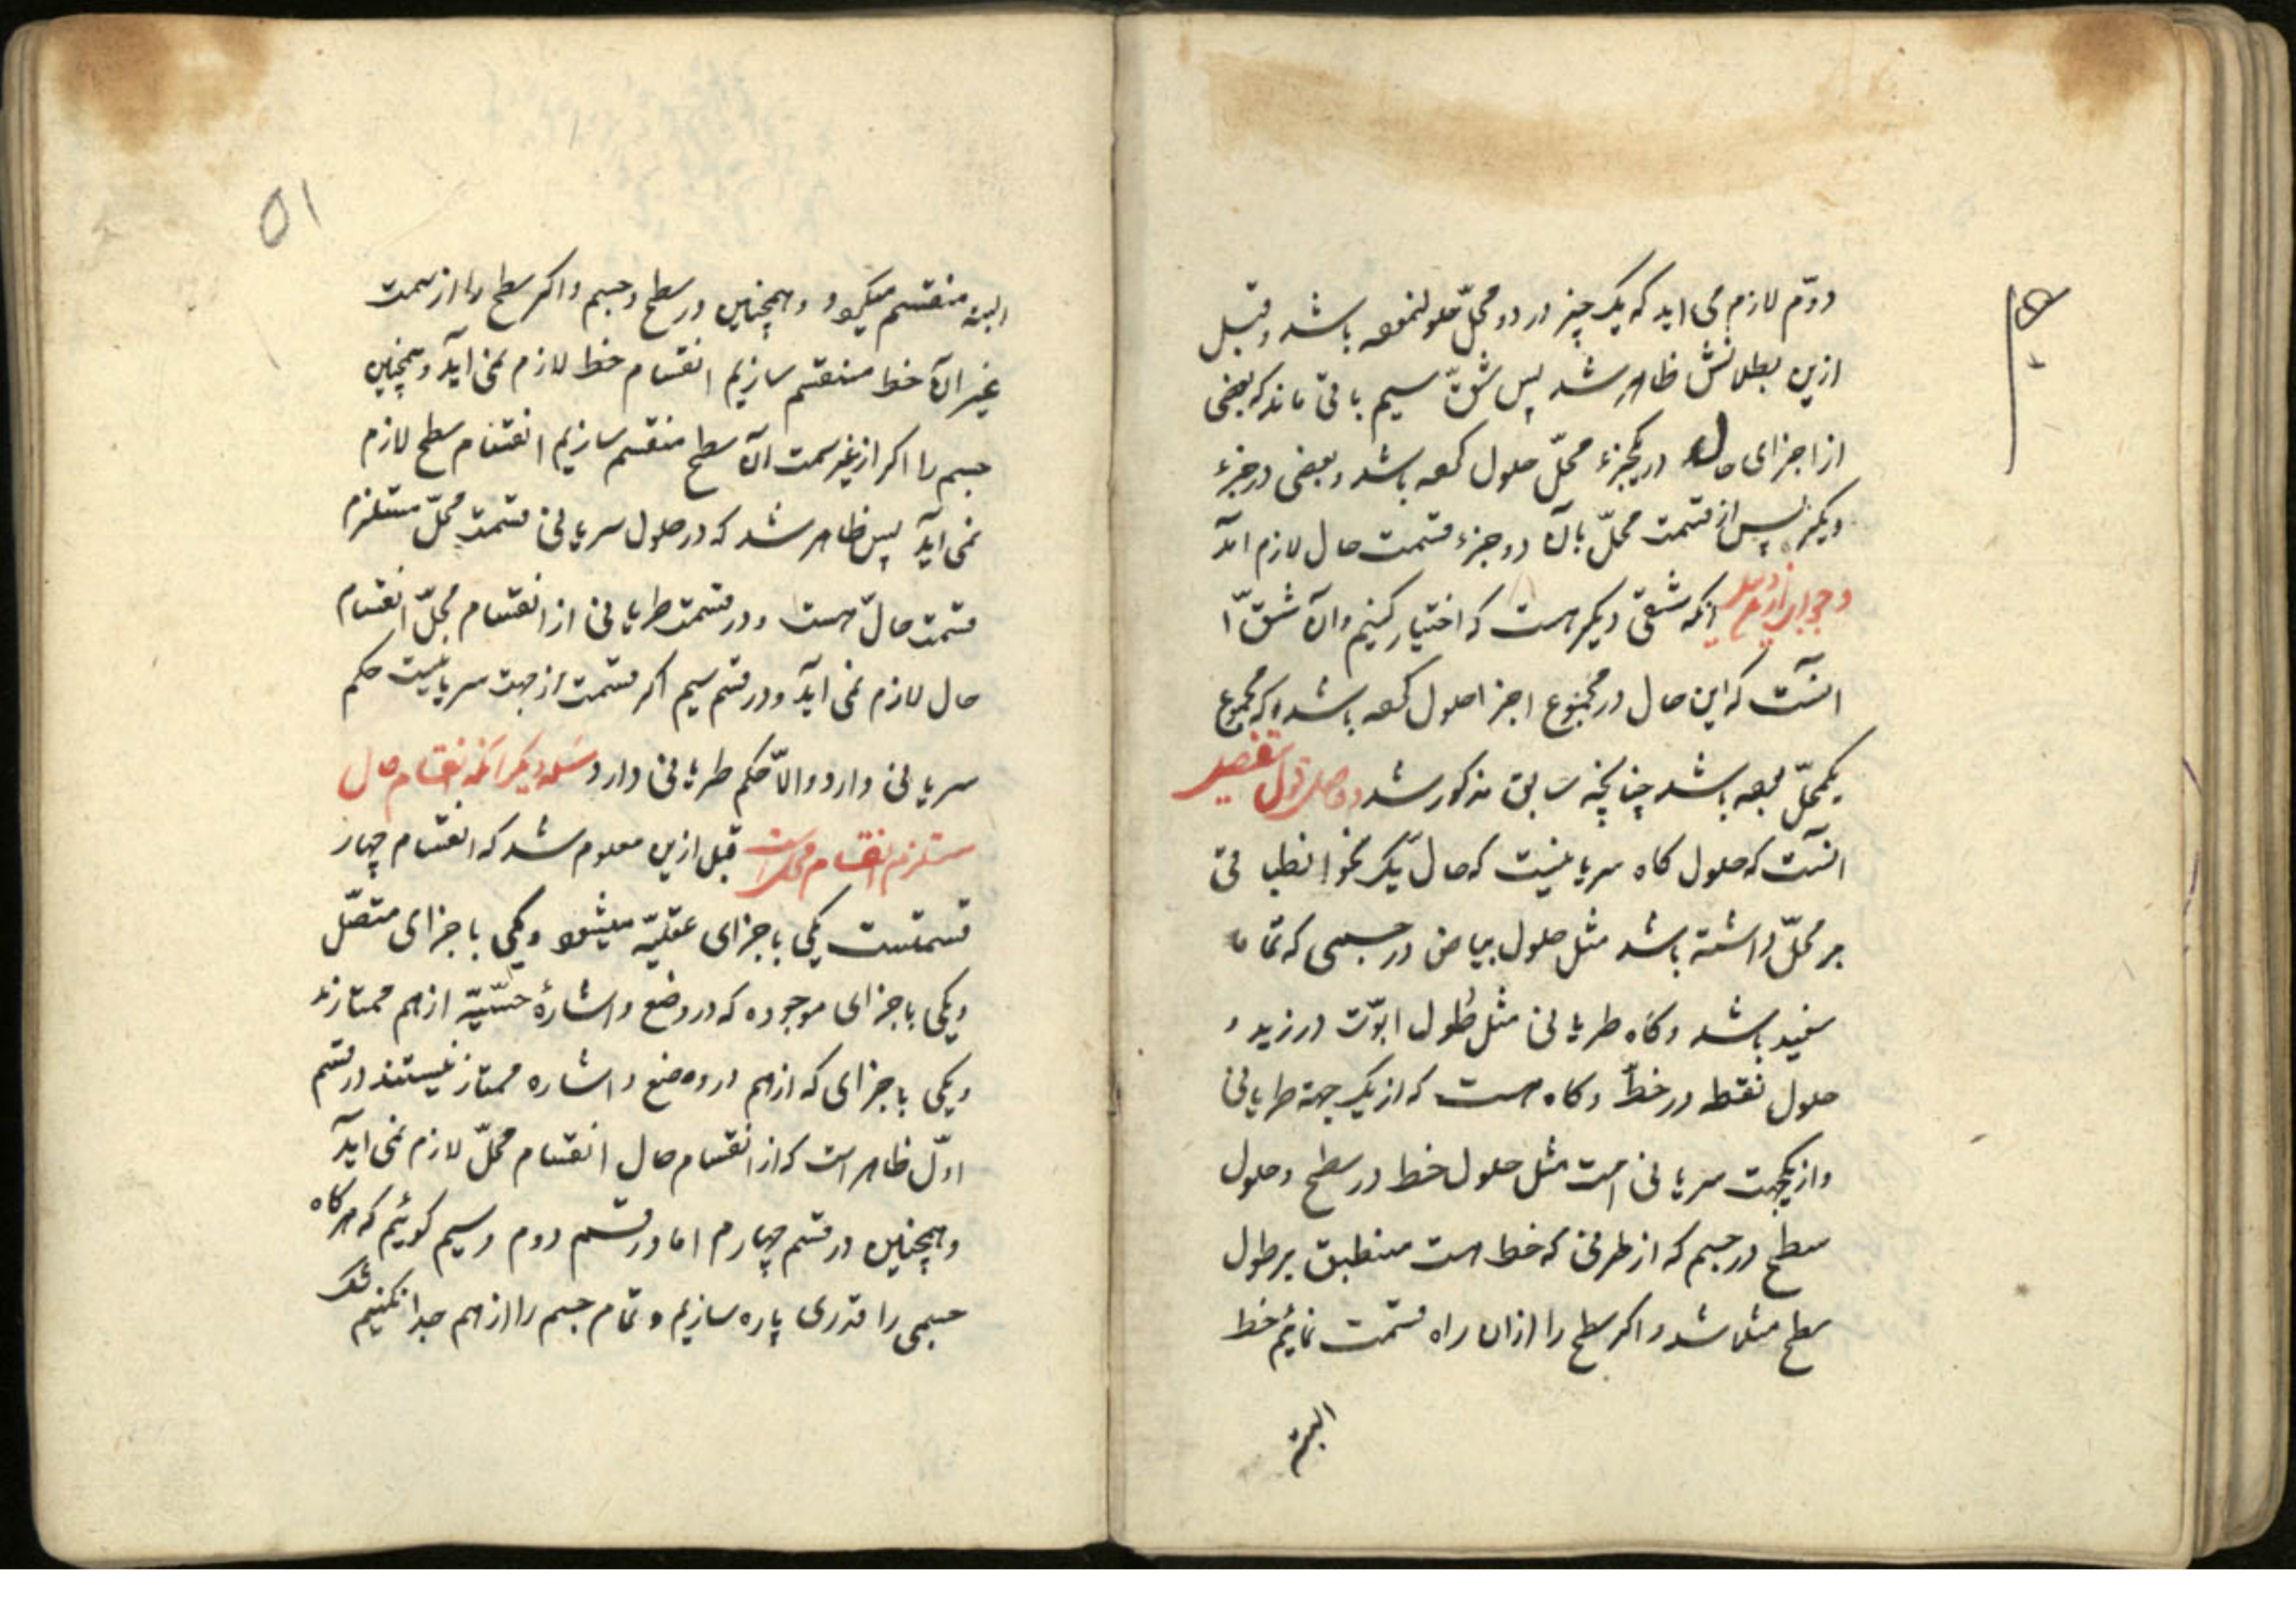 دوّم لازم می اید که یک چیز در دو محلّ حلول نموده باشد و قبل
ازین بطلانش ظاهر شد پس شقّ سیم باقی ماند که بعضی
از اجزای حال در یکجزء محلّ حلول کرده باشد و بعضی در جزء
دیکر پس از قسمت محلّ بان دو جزء قسمت حال لازم آمد
و جواب ازدلیل انکه شقی دیکر هست که اختیار کنیم وان شقّ
انست که این حال در مجموع اجزا حلول کرده باشد که مجموع
یکمحلّ بوده باشد چنانچه سابق مذکور شد و حاصل قول تفصیل
انست که حلول کاه سریانیست که حال یک نحو انطباقی
بر محلّ داشته باشد مثل حلول بیاض در جسمی که تماما
سفید باشد و کاه طریانی مثل حلول ابوّت در زید و
حلول نقطه در خطّ و کاه هست که از یک جهة طریانی
و از یکجهت سریانی است مثل حلول خط در سطح و حلول
سطح در جسم که از طرفی که خط هست منطبق بر طول
سطح مثلا شد و اکر سطح را ازان راه قسمت نمائیم خط
البته
۵۱
البته منقسم میکردد و همچنین در سطح و جسم و اکر سطح را از سمت
غیر ان خط منقسم سازیم انقسام خط لازم نمی اید و همچنین
جسم را اکر از غیر سمت ان سطح منقسم سازیم انقسام سطح لازم
نمی اید پس ظاهر شد که در حلول سریانی قسمت محلّ مستلزم
قسمت حالّ هست و در قسمت طریانی از انقسام محلّ انقسام
حال لازم نمی اید و در قسم سیم اکر قسمت از جهت سریانیست حکم
سریانی دارد والّا حکم طریانی دارد مسئله دیکر انکه انقسام حال
مستلزم انقسام محلّ است قبل ازین معلوم شد که انقسام چهار
قسمتست یکی باجزای عقلیّه میشود و یکی باجزای متصّل
و یکی باجزای موجوده که در وضع و اشارۀ حسّیّه از هم ممتازند
و یکی باجزای که از هم در وضع و اشاره ممتاز نیستند در قسم
اوّل ظاهر است که از انقسام حال انقسام محلّ لازم نمی اید
و همچنین در قسم چهارم اما در قسم دوم و سیم کوئیم که هرکاه
جسمی را قدری پاره سازیم و تمام جسم را از هم جدا نکنیم شک